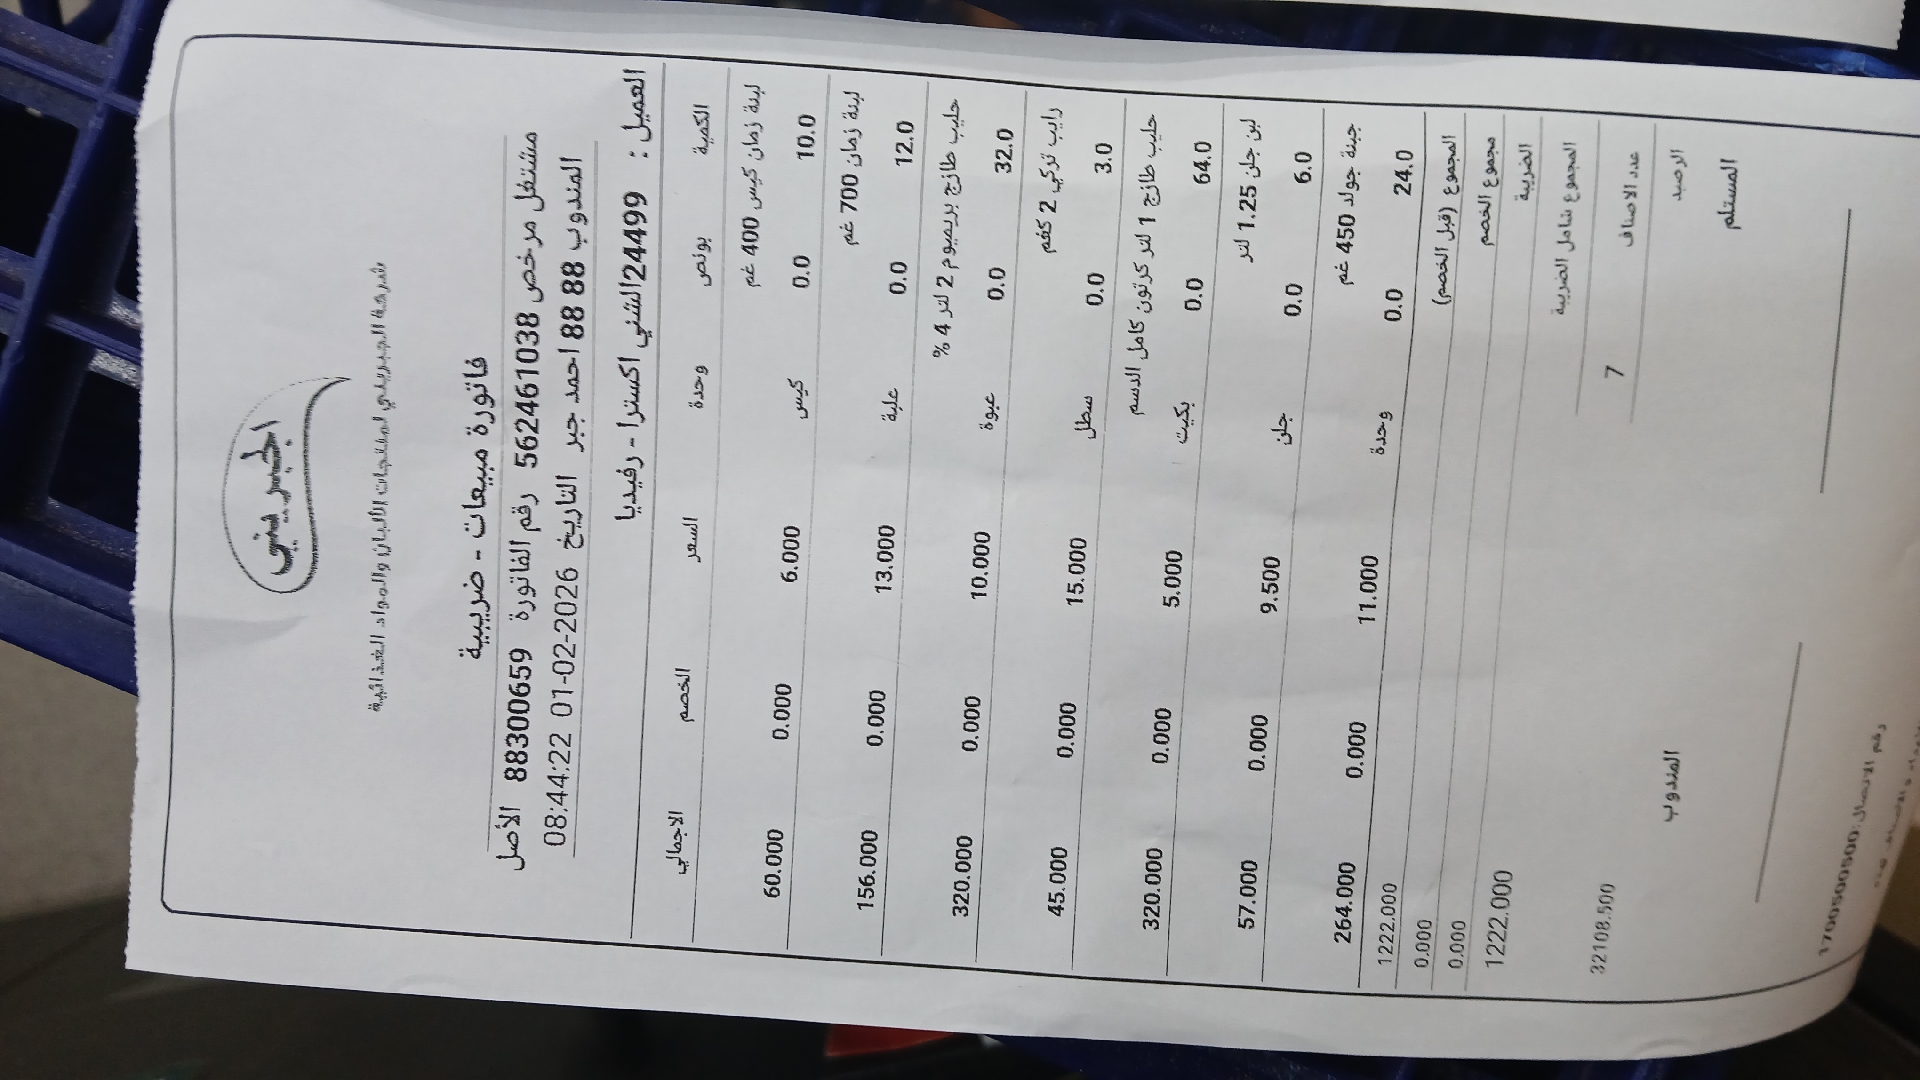 الجبريني
شركة الجبريني لمنتجات الألبان والمواد الغذائية
فاتورة مبيعات - ضريبية
مشتغل مرخص 562461038 رقم الفاتورة 88300659 الأصل
المندوب 88 88 احمد جبر التاريخ 2026-02-01 08:44:22
العميل : 24499الشني اكسترا - رفيديا
الكمية بونص وحدة السعر الخصم الاجمالي
لبنة زمان كيس 400 غم
10.0 0.0 كيس 6.000 0.000 60.000
لبنة زمان 700 غم
12.0 0.0 علبة 13.000 0.000 156.000
حليب طازج بريميوم 2 لتر 4 %
32.0 0.0 عبوة 10.000 0.000 320.000
رايب تركي 2 كغم
3.0 0.0 سطل 15.000 0.000 45.000
حليب طازج 1 لتر كرتون كامل الدسم
64.0 0.0 بكيت 5.000 0.000 320.000
لبن جلن 1.25 لتر
6.0 0.0 جلن 9.500 0.000 57.000
جبنة جولد 450 غم
24.0 0.0 وحدة 11.000 0.000 264.000
المجموع (قبل الخصم) 1222.000
مجموع الخصم 0.000
الضريبة 0.000
المجموع شامل الضريبة 1222.000
عدد الاصناف 7
الرصيد 32108.500
المستلم المندوب
رقم الاتصال:1700500500